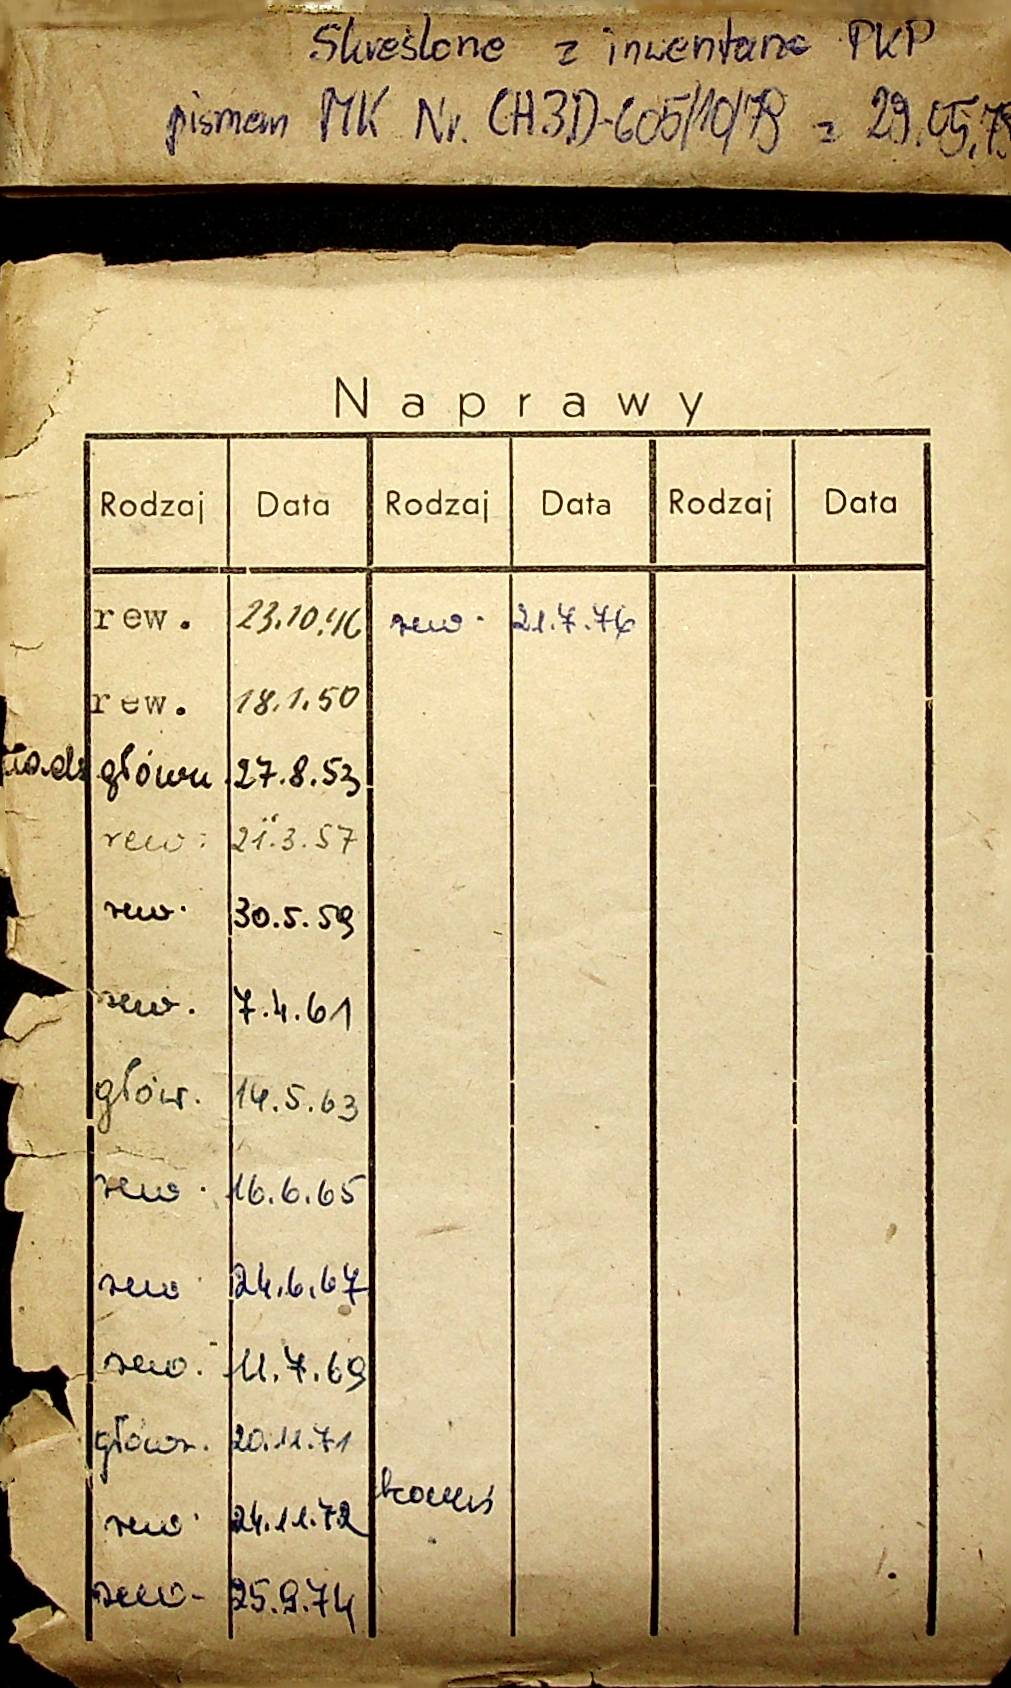 Skreślone z inwentarza PKP
pismem MK Nr. CH3D-605/10/79 z 29.05.79
Naprawy
Rodzaj Data Rodzaj Data Rodzaj Data
rew. 23.10.46 rew. 21.7.76
rew. 18.1.50
główn 27.8.53
rew. 21.3.57
rew. 30.5.59
rew. 7.4.61
głów. 14.5.63
rew. 16.6.65
rew 24.6.67
rew. 11.7.69
główn. 20.11.71
rew. 24.11.72
rew. 25.9.74